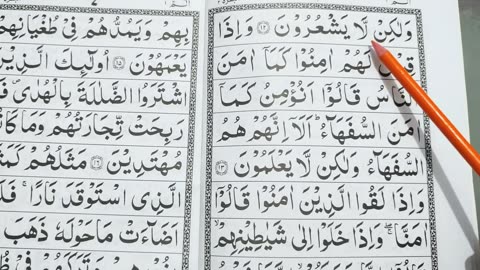 وَلٰكِنْ لَّا يَشْعُرُوْنَ ۝۱۲ وَاِذَا
قِيْلَ لَهُمْ اٰمِنُوْا كَمَاۤ اٰمَنَ
النَّاسُ قَالُوْۤا اَنُؤْمِنُ كَمَاۤ
اٰمَنَ السُّفَهَآءُ ؕ اَلَاۤ اِنَّهُمْ هُمُ
السُّفَهَآءُ وَلٰكِنْ لَّا يَعْلَمُوْنَ ۝۱۳
وَاِذَا لَقُوا الَّذِيْنَ اٰمَنُوْا قَالُوْۤا
اٰمَنَّا ۖۚ وَاِذَا خَلَوْا اِلٰى شَيٰطِيْنِهِمْ ۙ
بِهِمْ وَيَمُدُّهُمْ فِيْ طُغْيَانِهِمْ
يَعْمَهُوْنَ ۝۱۵ اُولٰٓئِكَ الَّذِيْنَ
اشْتَرَوُا الضَّلٰلَةَ بِالْهُدٰى
رَبِحَتْ تِّجَارَتُهُمْ وَمَا
مُهْتَدِيْنَ ۝۱۶ مَثَلُهُمْ
الَّذِى اسْتَوْقَدَ نَارًا ۚ
اَضَآءَتْ مَا حَوْلَهٗ ذَهَبَ